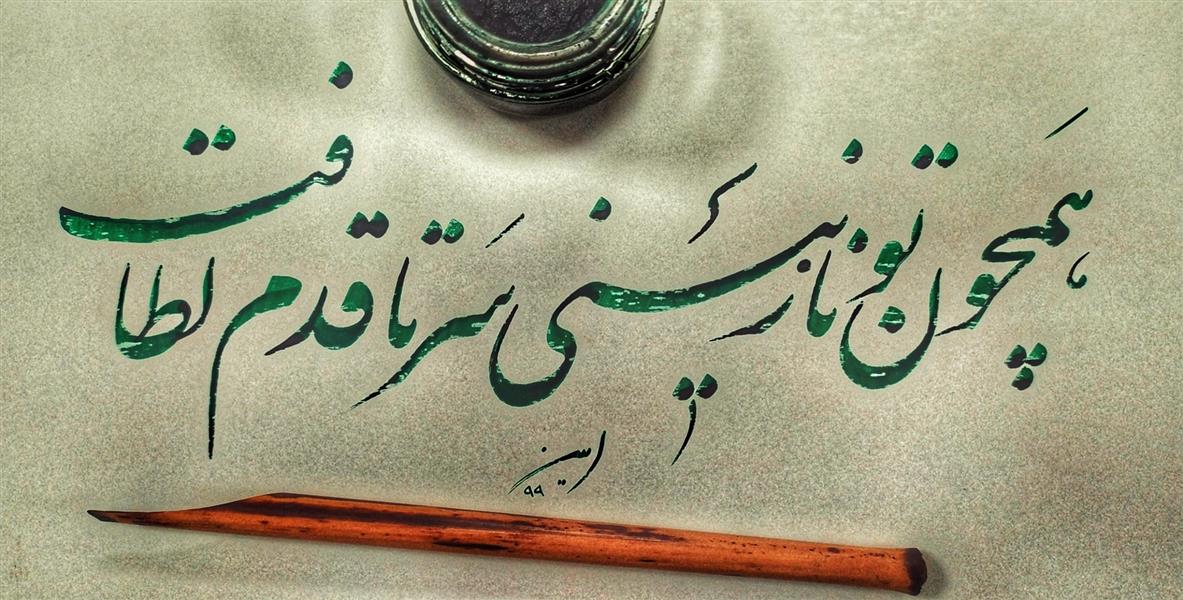 همچون تو نازنینی سَر تا قدم لطافت
۹۹